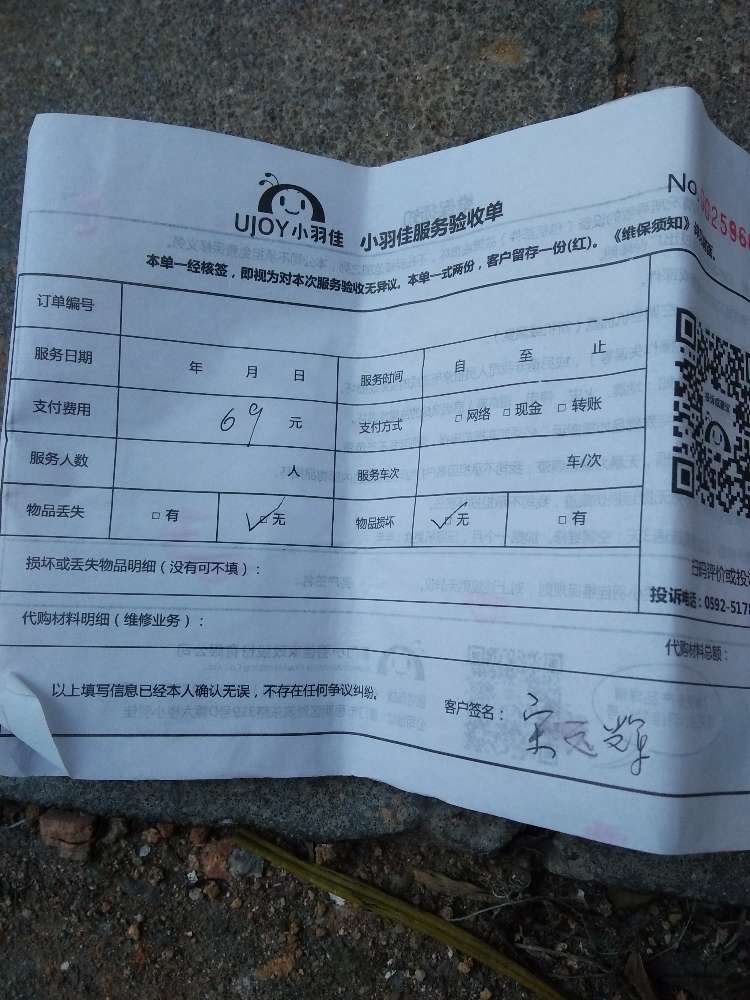 No
UJOY小羽佳 小羽佳服务验收单
本单一经核签，即视为对本次服务验收无异议。本单一式两份，客户留存一份(红)。《维保须知》
订单编号
服务日期 年 月 日 服务时间 自 至 止
支付费用 69 元 支付方式 □ 网络 □ 现金 □ 转账
服务人数 人 服务车次 车/次
物品丢失 □ 有 ✓□ 无 物品损坏 ✓□ 无 □ 有
损坏或丢失物品明细（没有可不填）：
扫码评价或投
投诉电话：0592-517
代购材料明细（维修业务）：
代购材料总额：
以上填写信息已经本人确认无误，不存在任何争议纠纷。
客户签名：